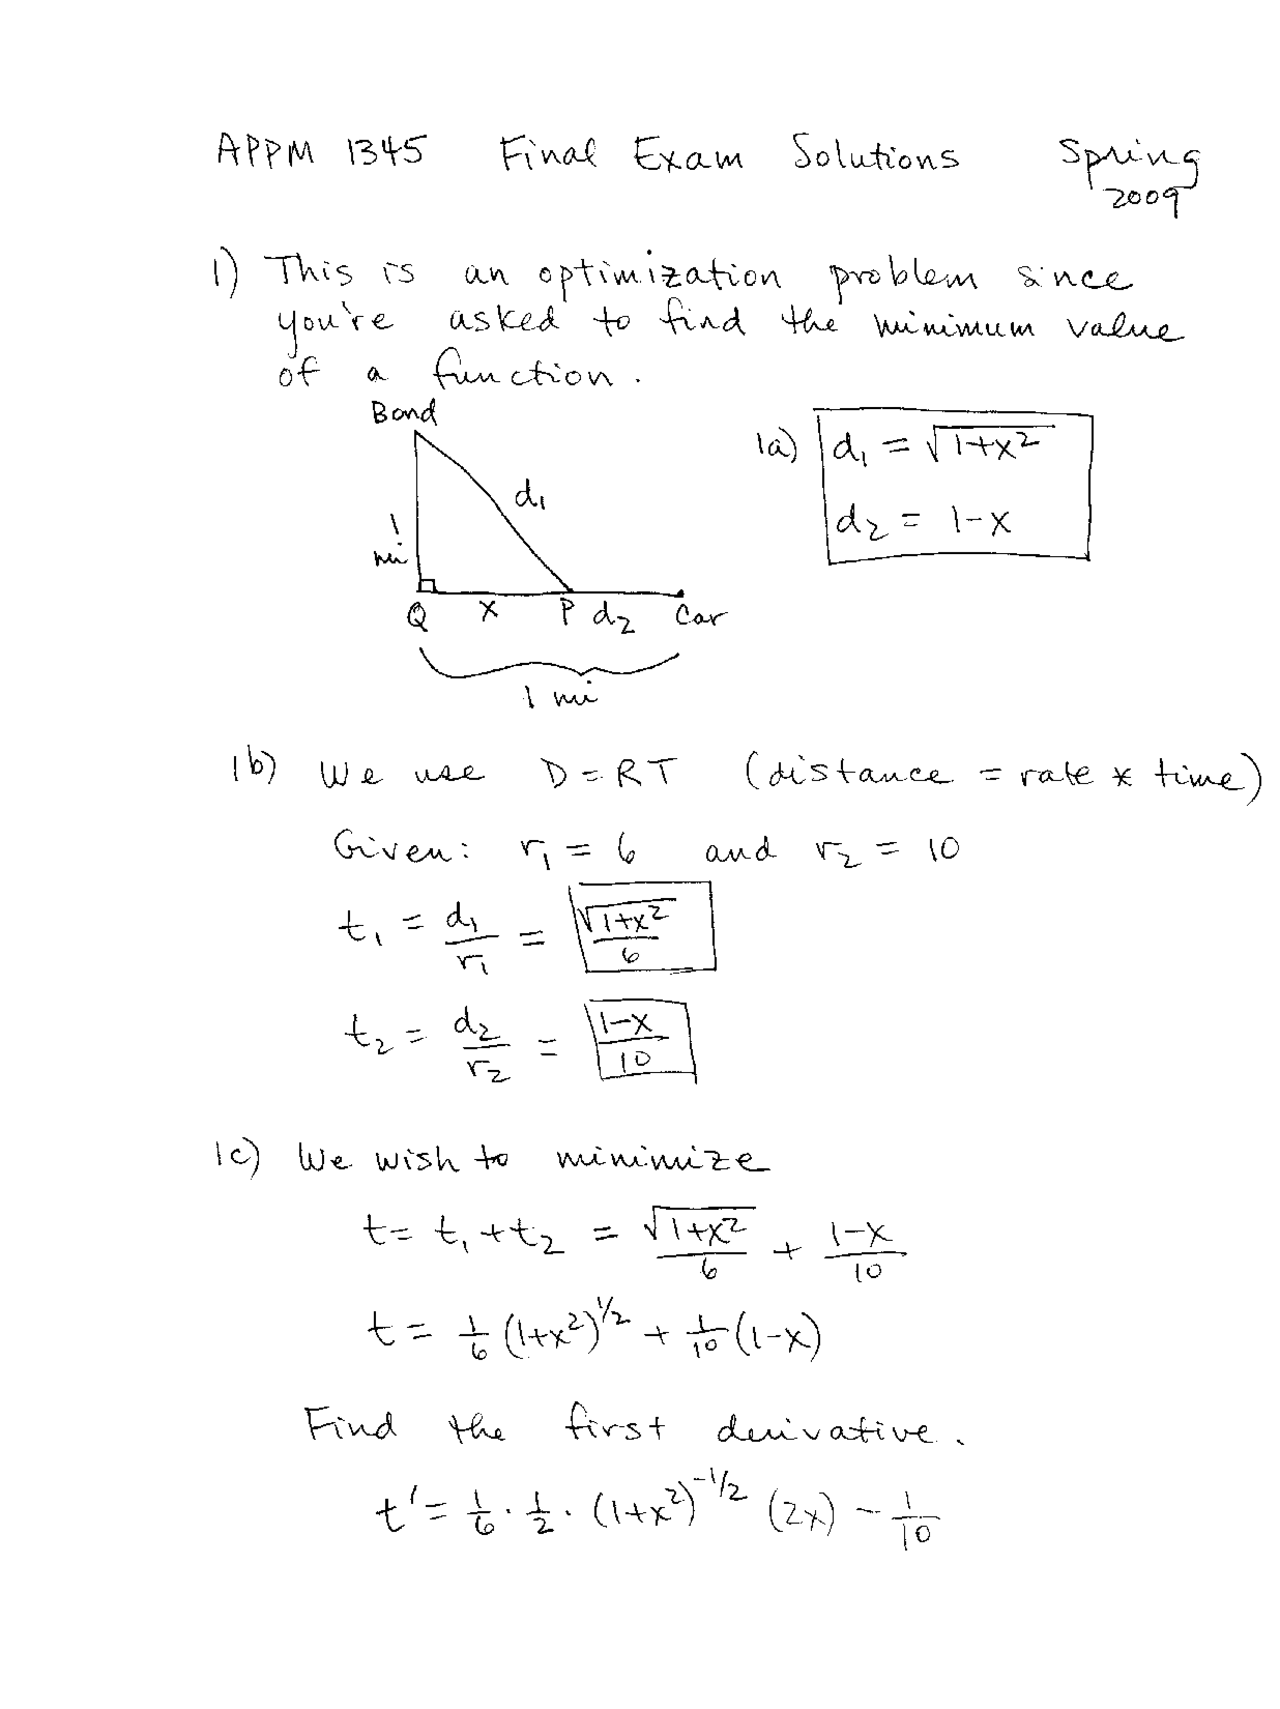 APPM 1345 Final Exam Solutions Spring
2009
1) This is an optimization problem since
you're asked to find the minimum value
of a function.
Bond
1a) d₁ = √(1+x²)
d₁
d₂ = 1-x
1
mi
Q x P d₂ Car
1 mi
1b) We use D=RT (distance = rate * time)
Given: r₁ = 6 and r₂ = 10
t₁ = d₁/r₁ = √(1+x²)/6
t₂ = d₂/r₂ = (1-x)/10
1c) We wish to minimize
t = t₁ + t₂ = √(1+x²)/6 + (1-x)/10
t = 1/6 (1+x²)^(1/2) + 1/10 (1-x)
Find the first derivative.
t' = 1/6 · 1/2 · (1+x²)^(-1/2) (2x) - 1/10